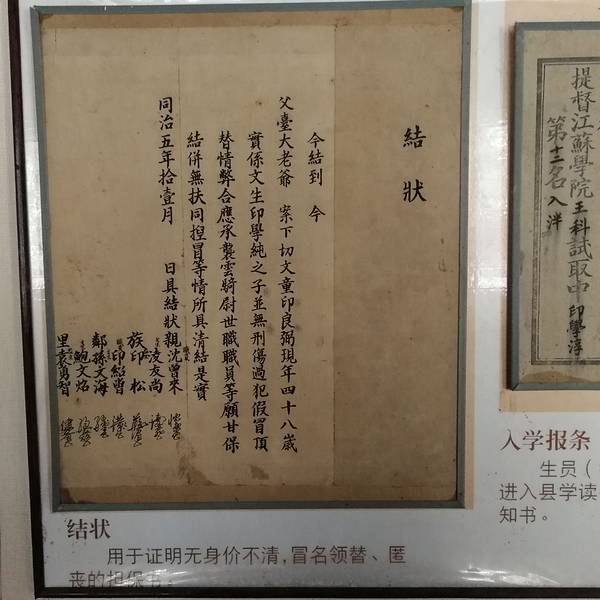 結狀
今結到 今
父臺大老爺 案下切文童印良弼現年四十八歲
實係文生印學純之子並無刑傷過犯假冒頂
替情弊合應承襲雲騎尉世職職員等願甘保
結併無扶同捏冒等情所具清結是實
同治五年拾壹月 日具結狀親沈曾來
凌友尚
族印松
印紹曾
鄰孫文海
鮑文炤
里袁勇智
提督江蘇學院王科試取中印學淳
第十二名入泮
结状
用于证明无身价不清,冒名领替、匿
丧的担保书。
入学报条
生员（
进入县学读
知书。